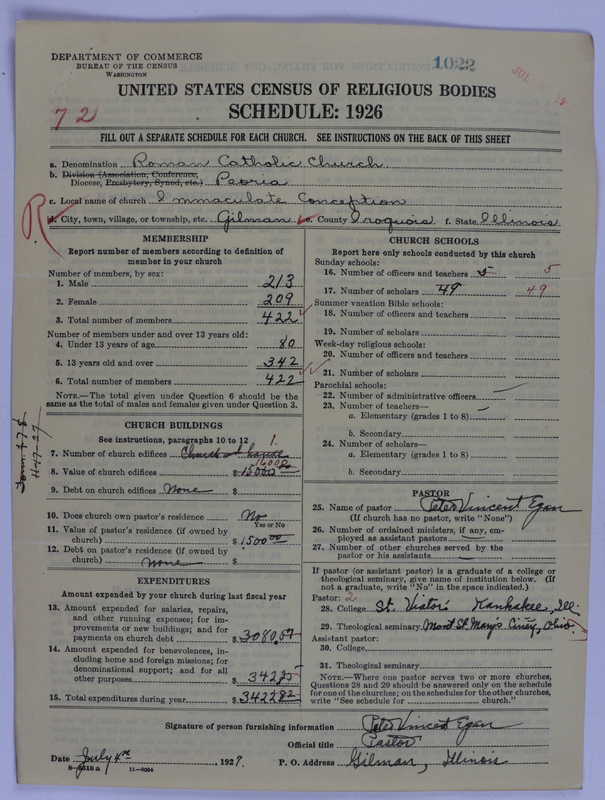 DEPARTMENT OF COMMERCE
BUREAU OF THE CENSUS
WASHINGTON
1022
JUL
72
UNITED STATES CENSUS OF RELIGIOUS BODIES
SCHEDULE: 1926
FILL OUT A SEPARATE SCHEDULE FOR EACH CHURCH. SEE INSTRUCTIONS ON THE BACK OF THIS SHEET
a. Denomination Roman Catholic Church
b. Division (Association, Conference, Diocese, Presbytery, Synod, etc.) Peoria
c. Local name of church Immaculate Conception
R
d. City, town, village, or township, etc. Gilman e. County Iroquois f. State Illinois
MEMBERSHIP
Report number of members according to definition of member in your church
Number of members, by sex:
1. Male 213
2. Female 209
3. Total number of members 422
Number of members under and over 13 years old:
4. Under 13 years of age 80
5. 13 years old and over 342
6. Total number of members 422
NOTE.—The total given under Question 6 should be the same as the total of males and females given under Question 3.
CHURCH BUILDINGS
See instructions, paragraphs 10 to 12
7. Number of church edifices Church 1.
8. Value of church edifices $15000 16000
9. Debt on church edifices None $
10. Does church own pastor's residence No
Yes or No
11. Value of pastor's residence (if owned by church) $1500 00
12. Debt on pastor's residence (if owned by church) none $
EXPENDITURES
Amount expended by your church during last fiscal year
13. Amount expended for salaries, repairs, and other running expenses; for improvements or new buildings; and for payments on church debt $3080.57
14. Amount expended for benevolences, including home and foreign missions; for denominational support; and for all other purposes $342.25
15. Total expenditures during year $3422 82
CHURCH SCHOOLS
Report here only schools conducted by this church
Sunday schools:
16. Number of officers and teachers 5 5
17. Number of scholars 49 49
Summer vacation Bible schools:
18. Number of officers and teachers
19. Number of scholars
Week-day religious schools:
20. Number of officers and teachers
21. Number of scholars
Parochial schools:
22. Number of administrative officers
23. Number of teachers—
a. Elementary (grades 1 to 8)
b. Secondary
24. Number of scholars—
a. Elementary (grades 1 to 8)
b. Secondary
PASTOR
25. Name of pastor Peter Vincent Egan
(If church has no pastor, write "None")
26. Number of ordained ministers, if any, employed as assistant pastors
27. Number of other churches served by the pastor or his assistants
If pastor (or assistant pastor) is a graduate of a college or theological seminary, give name of institution below. (If not a graduate, write "No" in the space indicated.)
Pastor: 2
28. College St. Viator Kankakee, Ill.
29. Theological seminary Mont St. Mary's Cincy, Ohio.
Assistant pastor:
30. College
31. Theological seminary
NOTE.—Where one pastor serves two or more churches, Questions 28 and 29 should be answered only on the schedule for one of the churches; on the schedules for the other churches, write "See schedule for church."
Signature of person furnishing information Peter Vincent Egan
Official title Pastor
Date July 4th, 1927. P. O. Address Gilman, Illinois
11—9034